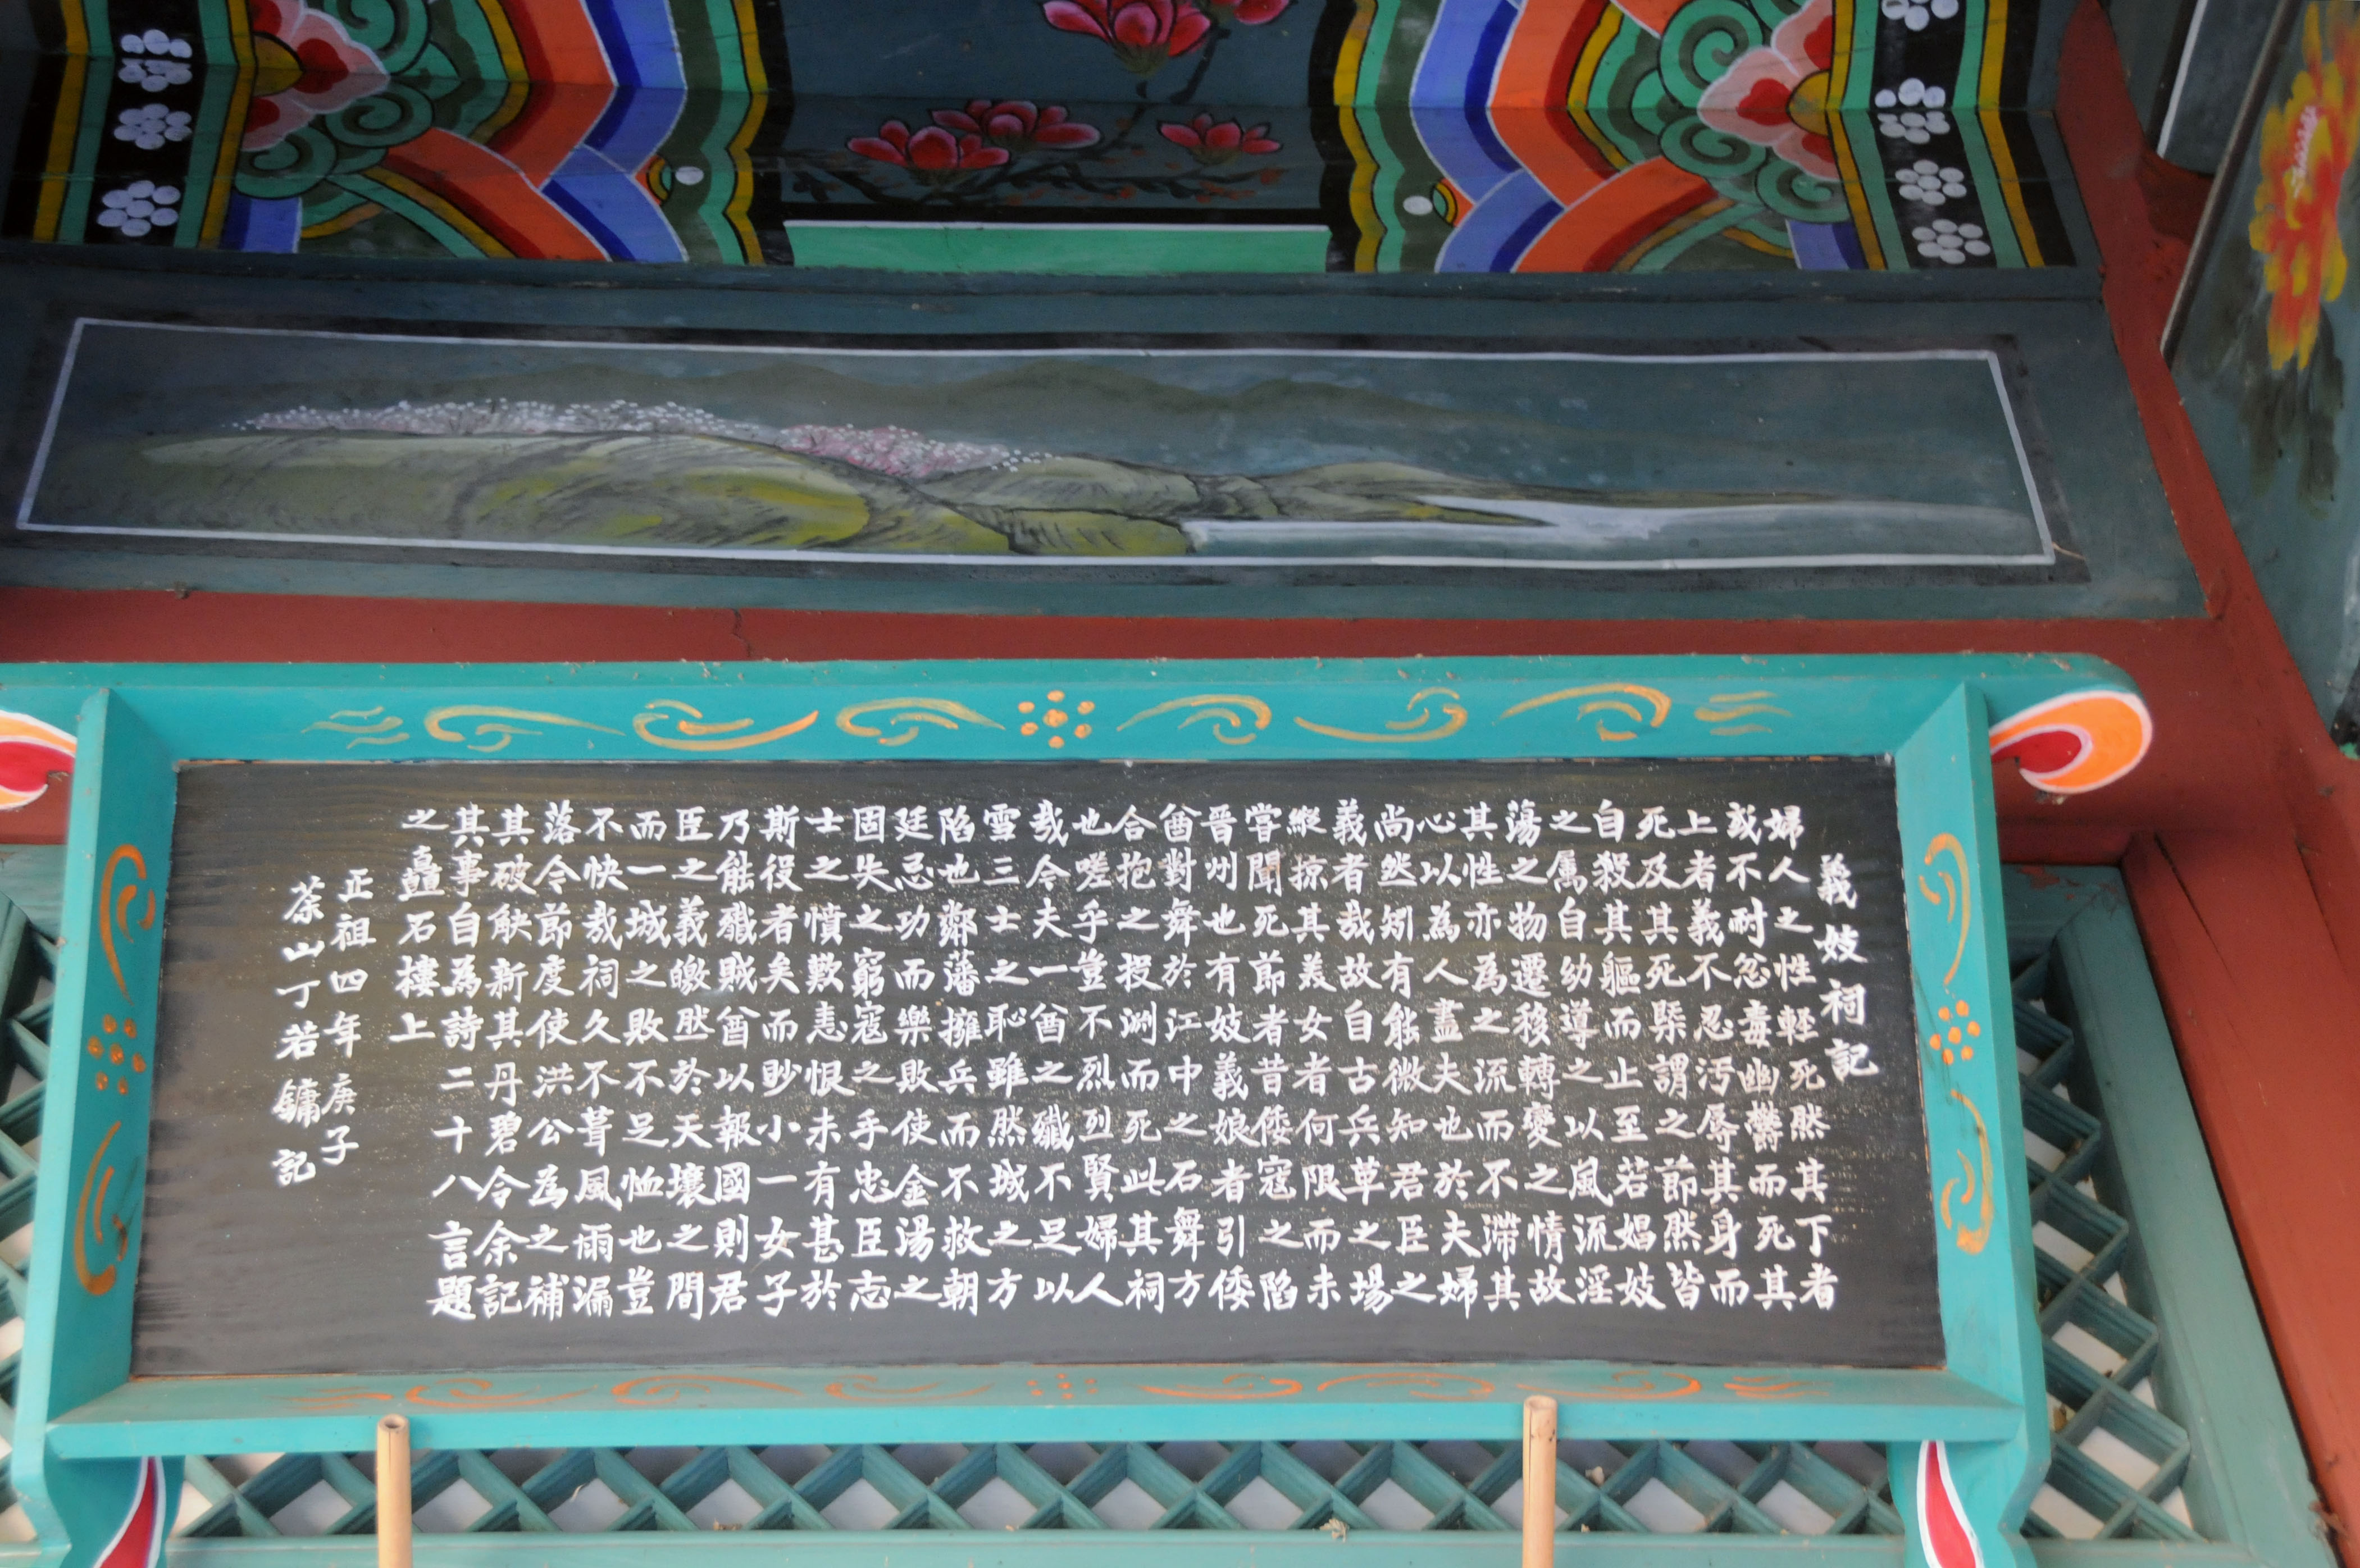 義妓祠記
婦人之性輕死然其下者
或不耐忿毒幽鬱而死其
上者義不忍汚辱其身而
死及其死槩謂之節然皆
自殺其軀而止至若娼妓
之属自幼導之以風流淫
蕩之物遷移轉變之情故
其性亦為之流而不滯其
心以為人盡夫也於夫婦
尚然矧有能微知君臣之
義者哉故自古兵革之場
縱掠其美女者何限而未
嘗聞死節者昔倭寇之陷
晉州也有妓義娘者引倭
酋對舞於江中之石舞方
合抱之投渊而死此其祠
也嗟乎豈不烈烈賢婦人
哉今夫一酋之殲不足以
雪三士之恥雖然城之方
陷也鄰藩擁兵而不救朝
廷忌功而樂敗使金湯之
固失之窮寇之手忠臣志
士之憤歎恚恨未有甚於
斯役者矣而眇小一女子
乃能殲賊酋以報國則君
臣之義皦然於天壤之間
而一城之敗不足恤也豈
不快哉祠久不葺風雨漏
落令節度使洪公為之補
其破觖新其丹碧令余記
其事自為詩二十八言題
之矗石樓上
正祖四年庚子
茶山丁若鏞記